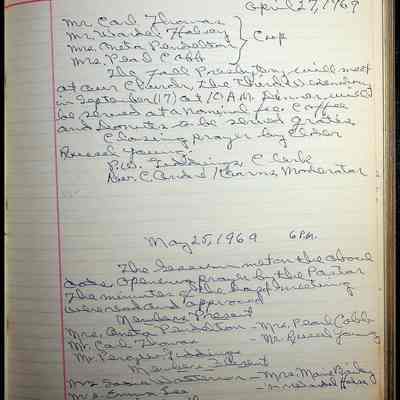 April 27, 1969
Mr. Carl Thomas
Mr. Wardel Halsey
Mrs. Oneta Pendelton } Cup
Mrs. Pearl Cobb
The Fall Presbytery will meet
at our Church, the Third Wednesday
in September (17) at 10 A.M. Dinner will
be served at a nominal fee. Coffee
and Donuts to be served gratis
Closing prayer by Elder
Russel Young.
P.W. Giddings, Clerk
Rev. C. Moderator
May 25, 1969 6 P.M.
The Session met on the above
date. Opening prayer by the Pastor
The minutes of the last meeting
were read and approved
Members Present
Mrs. Oneta Pendelton - Mrs. Pearl Cobb
Mr. Carl Thomas - Mr. Russel Young
Mr. Giddings
Members Absent
Mrs. Watterson - Mrs. Mary
Mrs. Emma Lee - Mr. Wardel Halsey